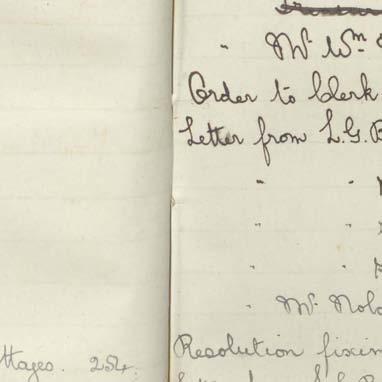 " Mr. Wm.
Order to Clerk
Letter from L.G.B
" "
" "
" "
" Mr. Nola
ttages. 254.
Resolution fixin